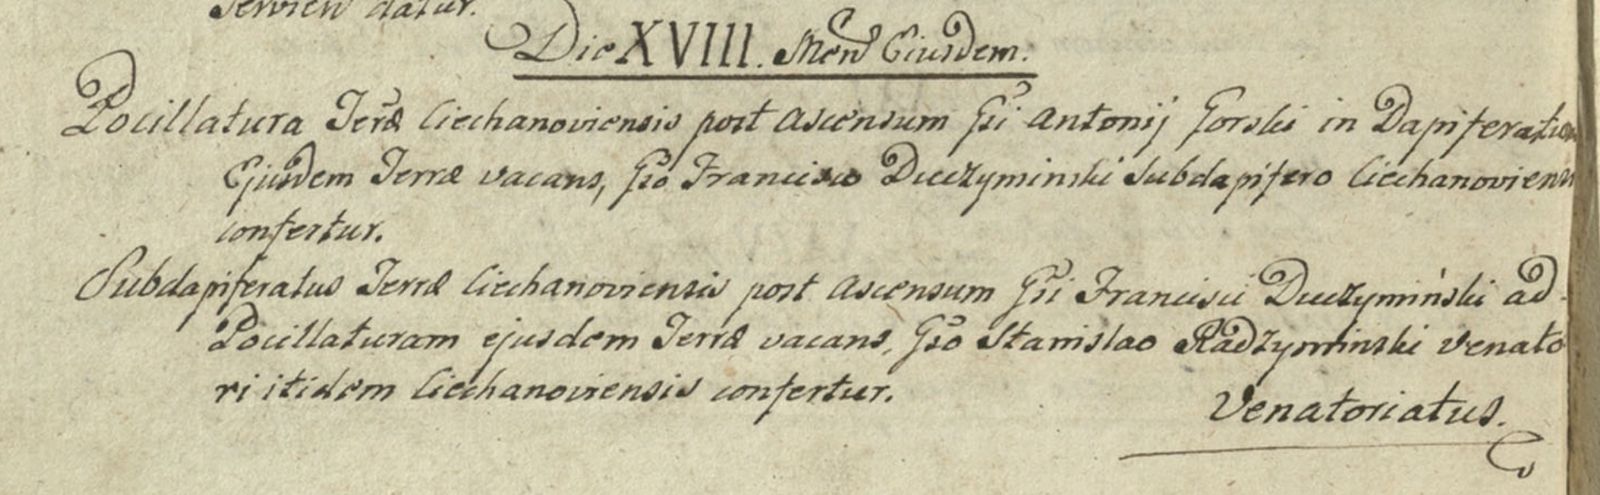 Servien datur.
Die XVIII. Men Ejusdem.
Pocillatura Terræ Ciechanoviensis post Ascensum Gsi Antonij Gorski in Dapiferatum
Ejusdem Terræ vacans, Gso Francisco Duczyminski Subdapifero Ciechanoviensi
confertur.
Subdapiferatus Terræ Ciechanoviensis post Ascensum Gsi Francisci Duczymiński ad
Pocillaturam ejusdem Terræ vacans, Gso Stanislao Radzyminski Venato
ri itidem Ciechanoviensis confertur.
Venatoriatus.